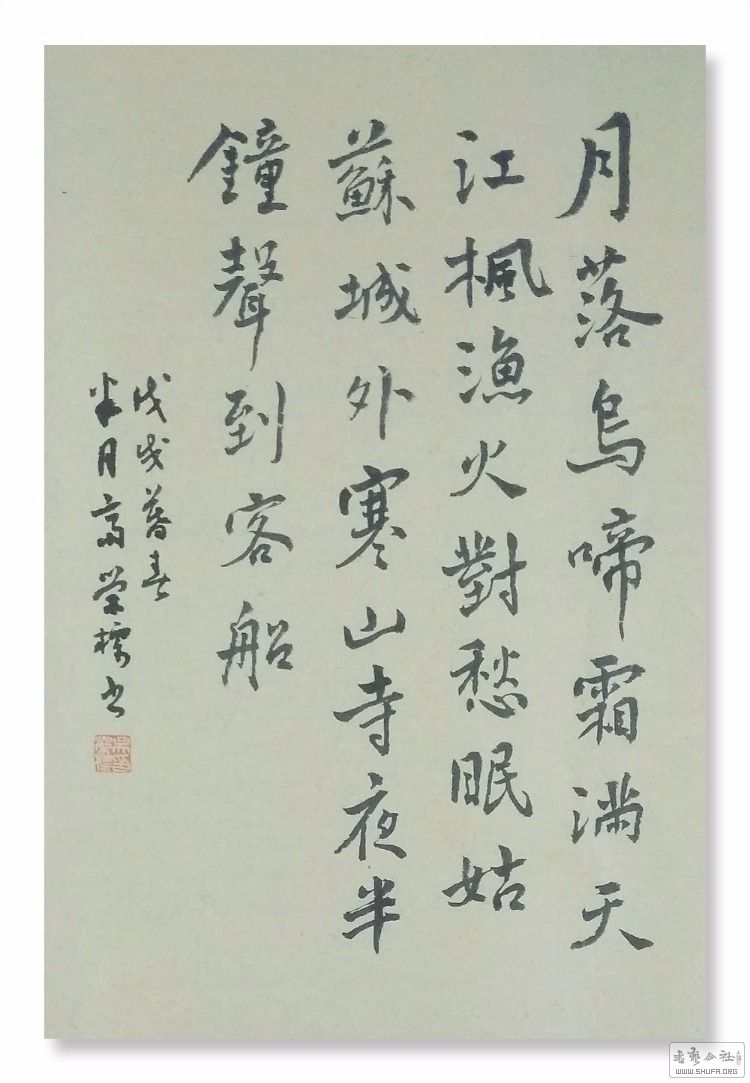 月落烏啼霜滿天
江楓漁火對愁眠姑
蘇城外寒山寺夜半
鐘聲到客船
戊戌暮春
半月齋榮標书
书艺公社
WWW.SHUFA.ORG